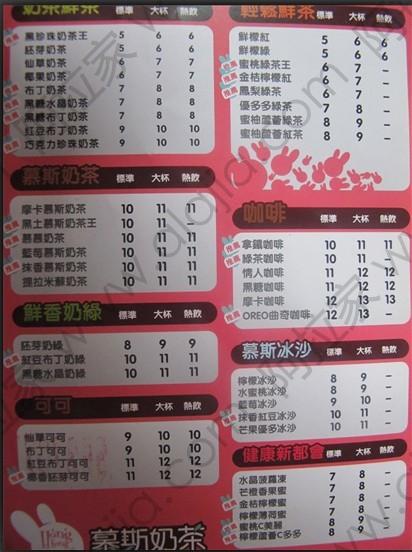 奶茶鮮茶 標準 大杯 熱飲
黑珍珠奶茶王 5 6 6
胚芽奶茶 5 6 6
仙草奶茶 6 7 7
椰果奶茶 6 7 7
布丁奶茶 7 8 8
黑糖水晶奶茶 7 8 8
黑糖布丁奶茶 7 8 8
紅豆布丁奶茶 9 10 10
巧克力珍珠奶茶 9 10 10
慕斯奶茶 標準 大杯 熱飲
摩卡慕斯奶茶 10 11 11
黑土慕斯奶茶王 10 11 –
慕慕奶茶 10 11 11
藍莓慕斯奶茶 10 11 11
抹香慕斯奶茶 10 11 11
提拉米蘇奶茶 10 11 11
鮮香奶綠 標準 大杯 熱飲
胚芽奶綠 8 9 9
紅豆布丁奶綠 10 11 11
黑糖水晶奶綠 10 11 11
可可 標準 大杯 熱飲
仙草可可 9 10 10
布丁可可 9 10 10
紅豆布丁可可 11 12 12
椰香胚芽可可 11 12 12
慕斯奶茶
輕鬆鮮茶 標準 大杯 熱飲
鮮檸紅 5 6 6
鮮檸綠 5 6 6
蜜桃綠茶王 6 7 –
金桔檸檬紅 6 7 –
鳳梨綠茶 6 7 –
優多多綠茶 7 8 –
蜜柚蘆薈綠茶 7 8 8
蜜柚蘆薈紅茶 7 8 8
咖啡 標準 大杯 熱飲
拿鐵咖啡 10 11 11
綠茶咖啡 10 11 –
情人咖啡 11 12 12
黑糖咖啡 11 12 12
摩卡咖啡 12 13 13
OREO曲奇咖啡 12 13 –
慕斯冰沙 標準 大杯 熱飲
檸檬冰沙 8 9 –
水蜜桃冰沙 8 9 –
藍莓冰沙 9 10 –
抹香紅豆冰沙 10 11 –
芒果優多冰沙 10 11 –
健康新都會 標準 大杯 熱飲
水晶菠蘿凍 7 8 –
芒橙香果蜜 7 8 –
金桔檸檬蜜 7 8 –
檸檬薄荷蜜 7 8 –
蜜桃C美麗 8 9 –
檸檬蘆薈C多多 8 9 –